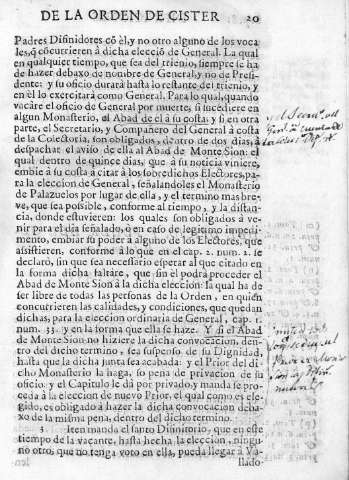 DE LA ORDEN DE CISTER 20
Padres Difinidores cõ èl, y no otro alguno de los voca
les, q̃ cõcurrieren à dicha elecciõ de General. La qual
en qualquier tiempo, que sea del trienio, siempre se ha
de hazer debaxo de nombre de General, y no de Presi-
dente: y su oficio durarà hasta lo restante del trienio, y
en èl lo exercitarà como General. Para lo qual, quando
vacâre el oficio de General por muerte, si sucediere en
algun Monasterio, el Abad de el à su costa: y si en otra
parte, el Secretario, y Compañero del General à costa
de la Colectoria, son obligados, dẽtro de dos dias, à
despachar el aviso de ella al Abad de Monte Sion: el
qual dentro de quinze dias, que à su noticia viniere,
embie à su costa à citar à los sobredichos Electores, pa-
ra la eleccion de General, señalandoles el Monasterio
de Palazuelos por lugar de ella, y el termino mas bre-
ve, que sea possible, conforme al tiempo, y à la distan-
cia, donde estuvieren: los quales son obligados à ve-
nir para el dia señalado, ò en caso de legitimo impedi-
mento, embiar su poder à alguno de los Electores, que
assistieren, conforme à lo que en el cap. 2. num. 2. se
declarò, sin que sea necessario esperar al que citado en
la forma dicha faltare, que sin el podrà proceder el
Abad de Monte Sion à la dicha eleccion: la qual ha de
ser libre de todas las personas de la Orden, en quien
concurrieren las calidades, y condiciones, que quedan
dichas, para la eleccion ordinaria de General, cap. 1.
num. 33. y en la forma que ella se haze. Y si el Abad
de Monte Sion no hiziere la dicha convocacion, den-
tro del dicho termino, sea suspenso de su Dignidad,
hasta que la dicha junta sea acabada: y el Prior del di-
cho Monasterio la haga, so pena de privacion de su
oficio: y el Capitulo le dà por privado, y manda se pro-
ceda à la eleccion de nuevo Prior, el qual como es ele-
gido, es obligado à hazer la dicha convocacion deba-
xo de la misma pena, dentro del dicho termino.
3 Iten manda el santo Difinitorio, que en este
tiempo de la vacante, hasta hecha la eleccion, ningu-
no otro, que no tenga voto en ella, pueda llegar à Va-
llado